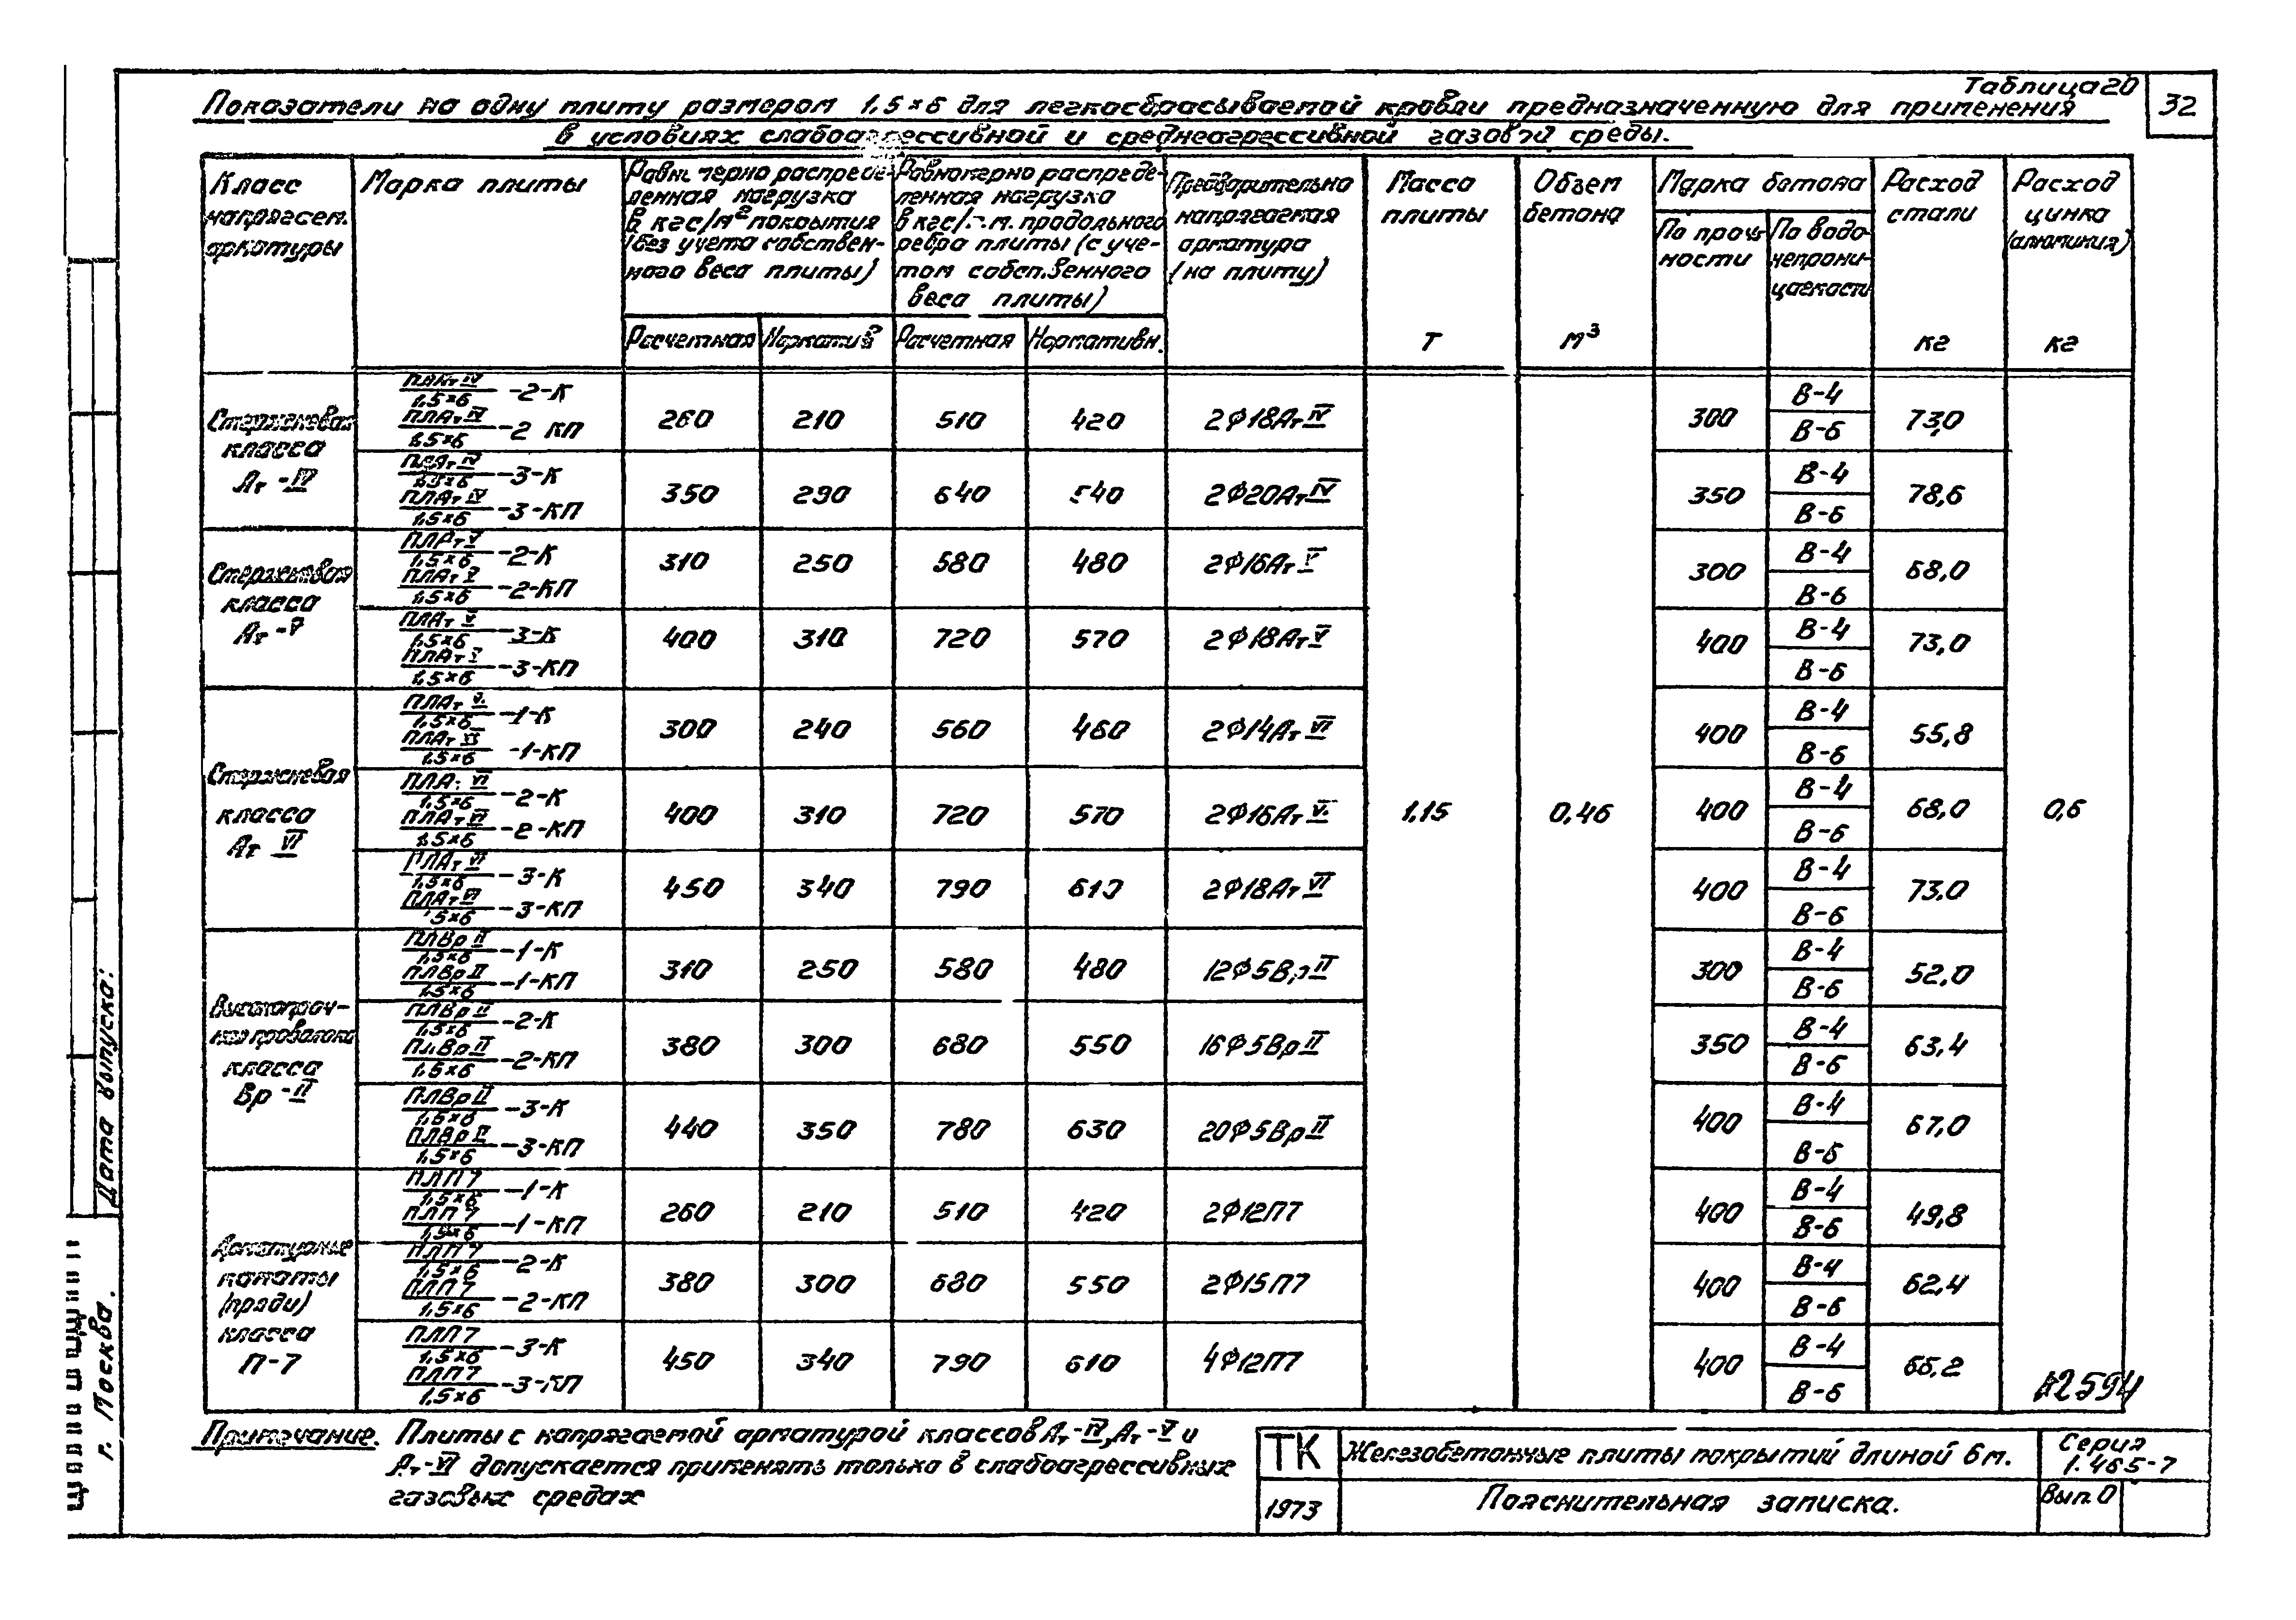 Таблица 20
32
Показатели на одну плиту размером 1,5×6 для легкосбрасываемой кровли предназначенную для применения
в условиях слабоагрессивной и среднеагрессивной газовой среды.
Класс напрягаем. арматуры
Марка плиты
Равномерно распределенная нагрузка в кгс/м² покрытия (без учета собственного веса плиты)
Равномерно распределенная нагрузка в кгс/п.м. продольного ребра плиты (с учетом собственного веса плиты)
Предварительно напрягаемая арматура (на плиту)
Масса плиты
Т
Объем бетона
м³
Марка бетона
По прочности
По водонепроницаемости
Расход стали
кг
Расход цинка (алюминия)
кг
Расчетная Норматив Расчетная Нормативн.
Стержневая класса Ат-IV
ПЛАт IV/1,5×6 -2-К
ПЛАт IV/1,5×6 -2 КП
260 210 510 420 2Ф18АтIV 300 В-4 В-6 73,0
ПЛАт IV/1,5×6 -3-К
ПЛАт IV/1,5×6 -3-КП
350 290 640 540 2Ф20АтIV 350 В-4 В-6 78,6
Стержневая класса Ат-V
ПЛАт V/1,5×6 -2-К
ПЛАт V/1,5×6 -2-КП
310 250 580 480 2Ф16АтV 300 В-4 В-6 68,0
ПЛАт V/1,5×6 -3-К
ПЛАт V/1,5×6 -3-КП
400 310 720 570 2Ф18АтV 400 В-4 В-6 73,0
Стержневая класса Ат VI
ПЛАт VI/1,5×6 -1-К
ПЛАт VI/1,5×6 -1-КП
300 240 560 460 2Ф14АтVI 400 В-4 В-6 55,8
ПЛАт VI/1,5×6 -2-К
ПЛАт VI/1,5×6 -2-КП
400 310 720 570 2Ф16АтVI 1,15 0,46 400 В-4 В-6 68,0 0,6
ПЛАт VI/1,5×6 -3-К
ПЛАт VI/1,5×6 -3-КП
450 340 790 610 2Ф18АтVI 400 В-4 В-6 73.0
Высокопрочная проволока класса Вр-II
ПЛВрII/1,5×6 -1-К
ПЛВрII/1,5×6 -1-КП
310 250 580 480 12Ф5ВрII 300 В-4 В-6 52,0
ПЛВрII/1,5×6 -2-К
ПЛВрII/1,5×6 -2-КП
380 300 680 550 16Ф5ВрII 350 В-4 В-6 63,4
ПЛВрII/1,5×6 -3-К
ПЛВрII/1,5×6 -3-КП
440 350 780 630 20Ф5ВрII 400 В-4 В-6 67,0
Арматурные канаты (пряди) класса П-7
ПЛП7/1,5×6 -1-К
ПЛП7/1,5×6 -1-КП
260 210 510 420 2Ф12П7 400 В-4 В-6 49,8
ПЛП7/1,5×6 -2-К
ПЛП7/1,5×6 -2-КП
380 300 680 550 2Ф15П7 400 В-4 В-6 62,4
ПЛП7/1,5×6 -3-К
ПЛП7/1,5×6 -3-КП
450 340 790 610 4Ф12П7 400 В-4 В-6 66,2
12594
Примечание. Плиты с напрягаемой арматурой классов Ат-IV, Ат-V и
Ат-VI допускается применять только в слабоагрессивных
газовых средах
ТК
1973
Железобетонные плиты покрытий длиной 6м.
Пояснительная записка.
Серия
1.465-7
Вып. 0
Дата выпуска:
г. Москва.